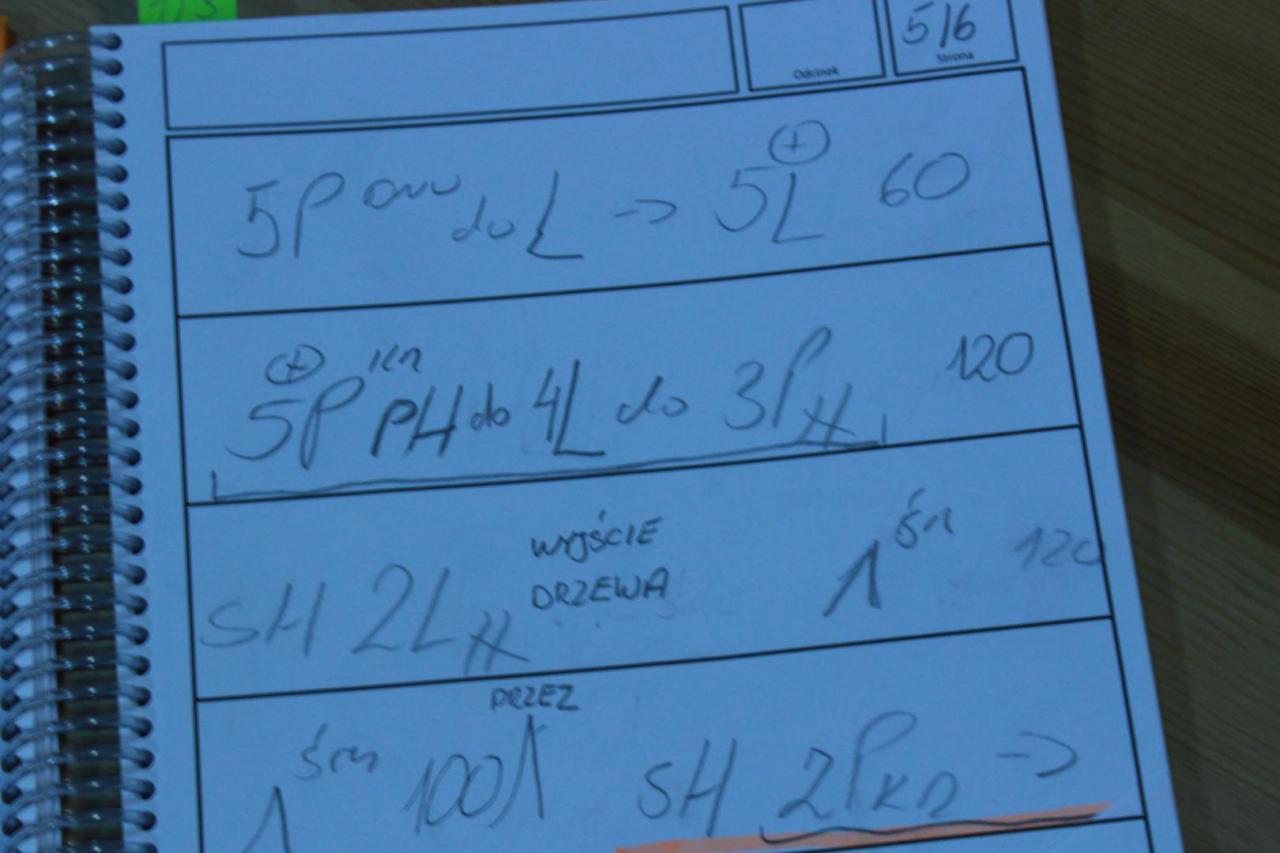 1/3
5/6
Odcinek
Strona
5P do L -> 5L 60
5P PH do 4L do 3P 120
SH 2L WYJŚCIE DRZEWA 120
PRZEZ
100 SH 2P ->